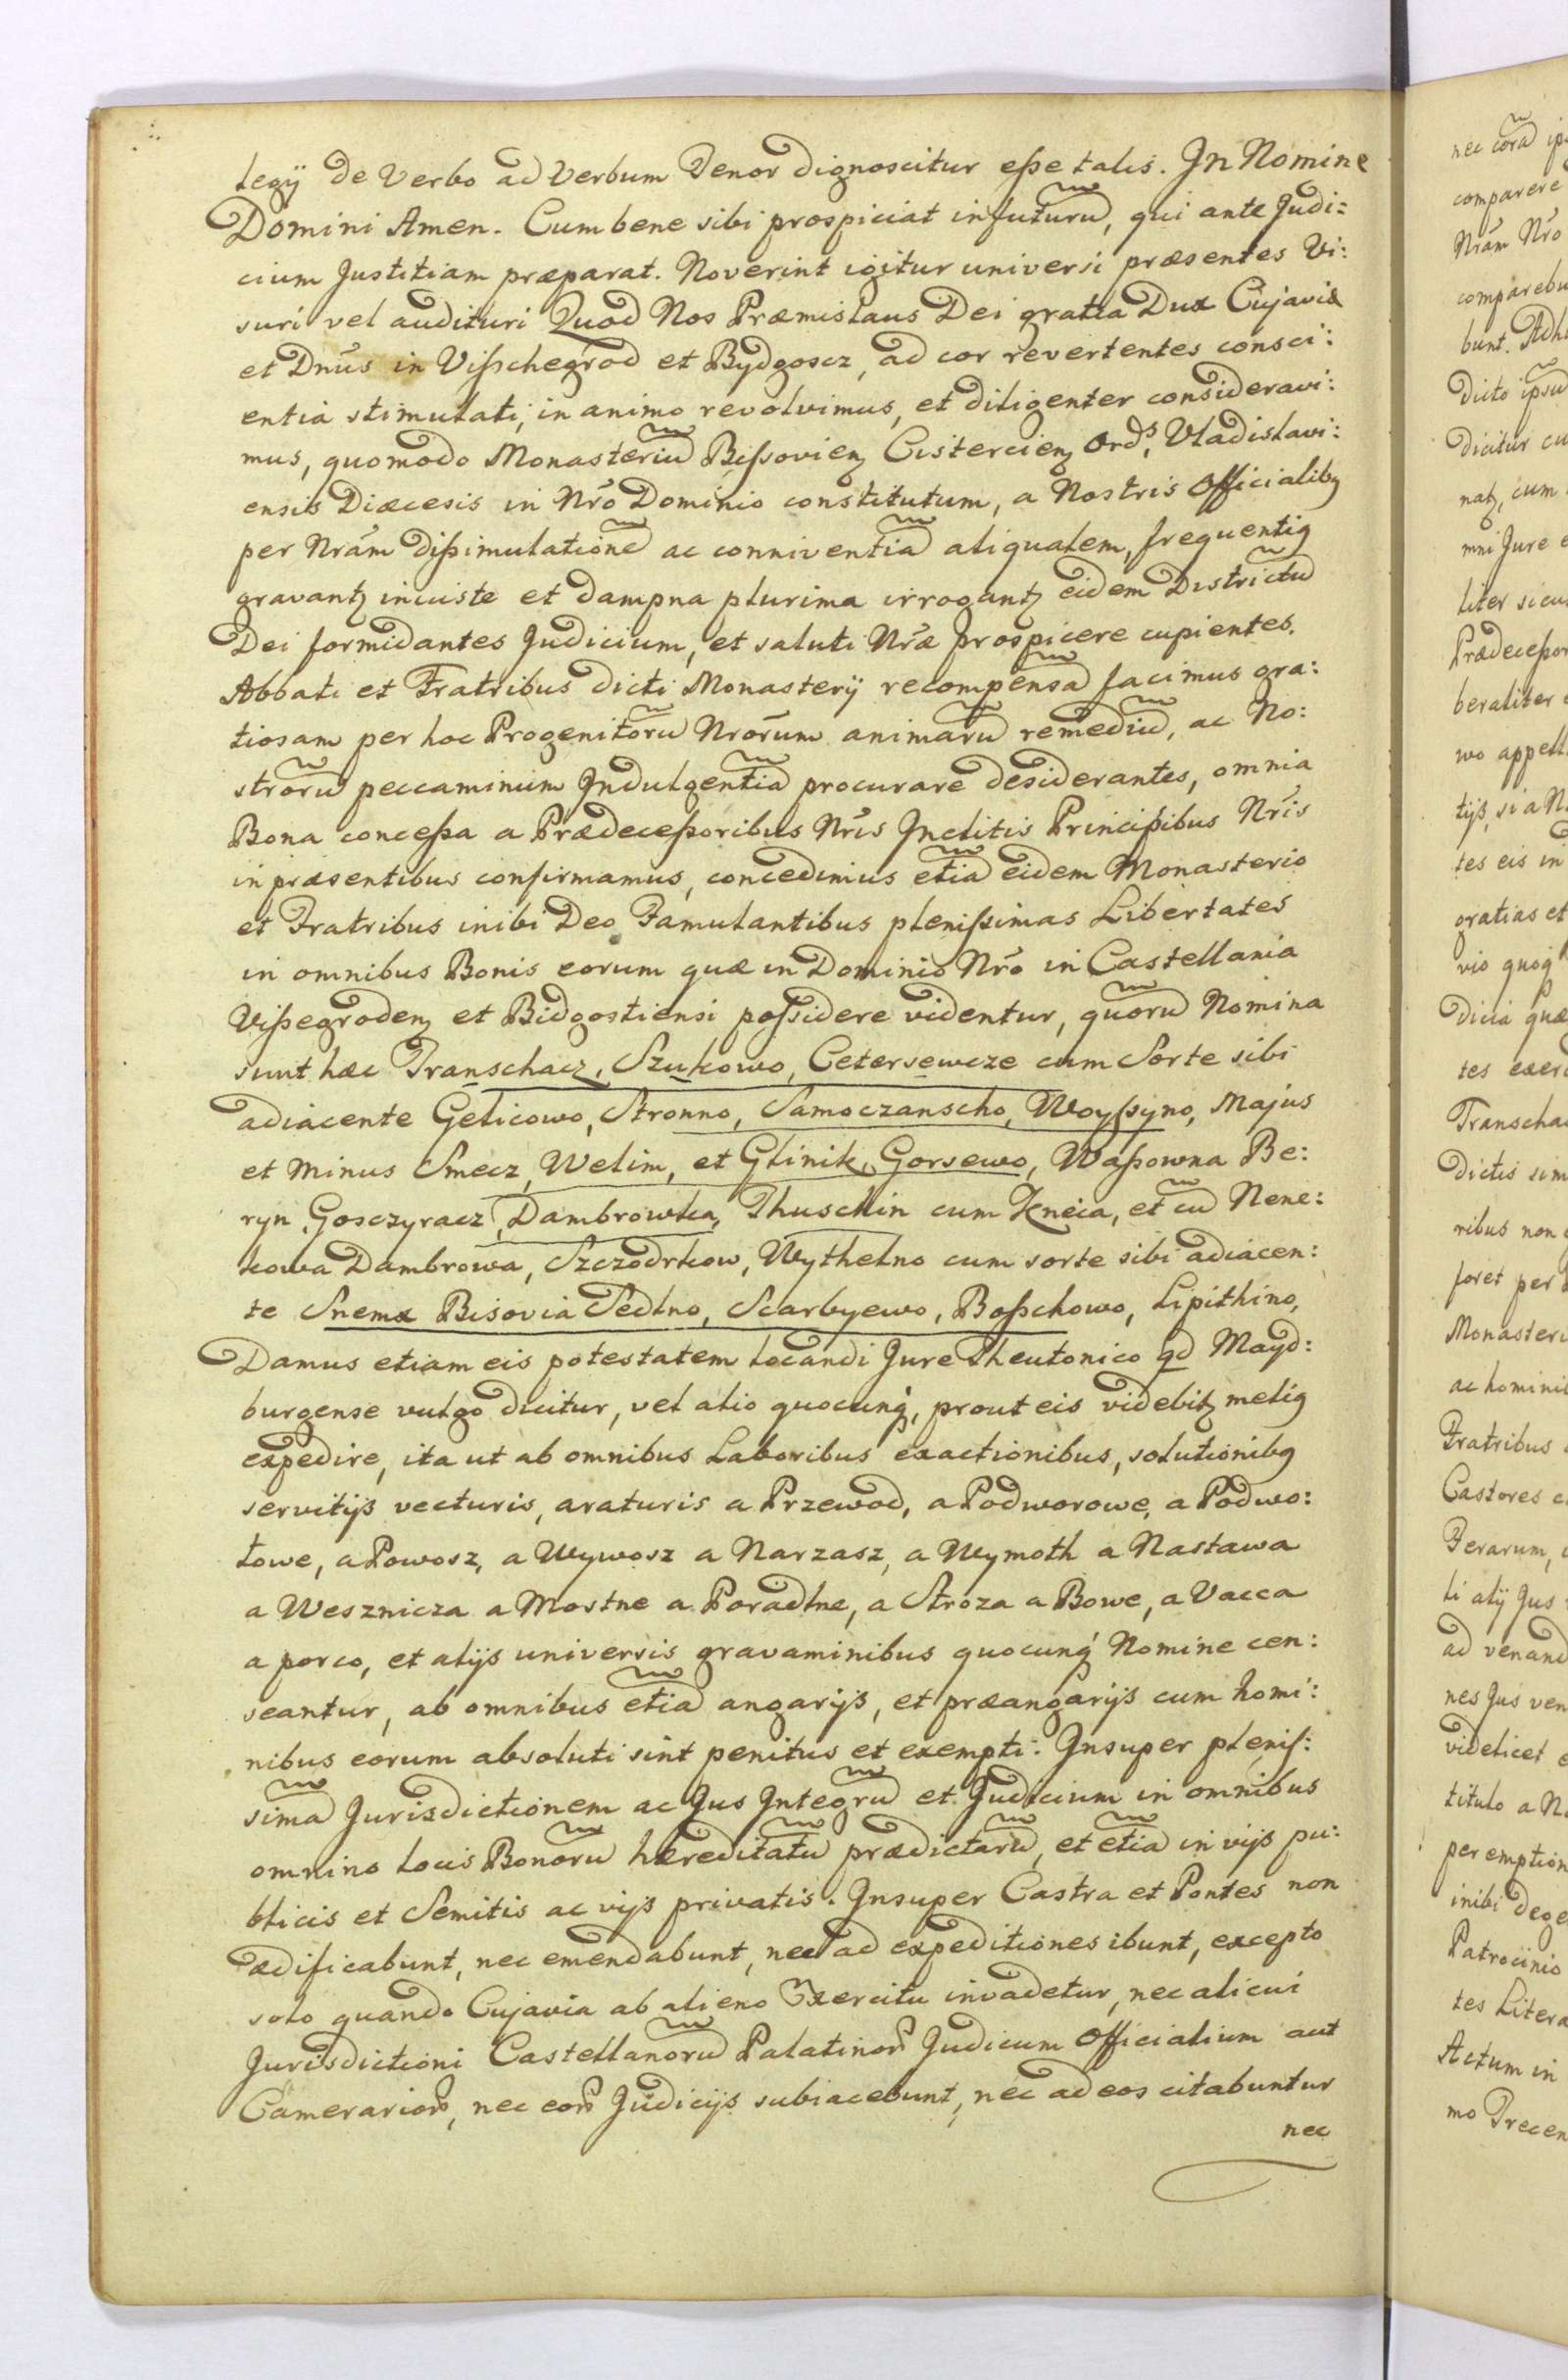 legÿ de Verbo ad Verbum Tenor dignoscitur eße talis. In Nomine
Domini Amen. Cum bene sibi prospiciat in futurũ, qui ante Judi:
cium Justitiam præparat. Noverint igitur universi præsentes Vi:
suri vel audituri Quod Nos Præmislaus Dei gratia Dux Cujaviæ
et Dnūs in Vißchegrod et Bydgoscz, ad cor revertentes consci:
entiâ stimulati, in animo revolvimus, et diligenter consideravi:
mus, quomodo Monasteriũ Bißovienʒ Cistercienʒ Ordˢ, Vladislavi:
ensis Diæcesis in Nr̃o Dominio constitutum, a Nostris Officialibꝫ
per Nrãm dißimulationẽ ac conniventiã aliqualem, frequentiꝫ
gravantʒ iniuste et dampna plurima irrogantʒ eidem Districtũ
Dei formidantes Judicium, et saluti Nr̃æ prospicere cupientes.
Abbati et Fratribus dicti Monasterÿ recompensã facimus gra:
tiosam per hoc Progenitorũ Nrõrum animarũ remediũ, ac No:
strorũ peccaminum Indulgentiã procurare desiderantes, omnia
Bona conceßa a Prædeceßoribus Nrĩs Inclitis Principibus Nrĩs
in præsentibus confirmamus, concedimus etiã eidem Monasterio
et Fratribus inibi Deo Famulantibus plenißimas Libertates
in omnibus Bonis eorum quæ in Dominio Nr̃o in Castellania
Vißegrodenʒ et Bidgostiensi poßidere videntur, quorũ Nomina
sunt hæc Transchacz, Szukowo, Cetersewcze cum Sorte sibi
adiacente Gelicowo, Stronno, Samoczanscho, Woyßyno, Majus
et Minus Smecz, Welim, et Glinik, Gorsewo, Waßowna Be:
ryn Gosczyracz, Dambrowka, Thuschin cum Kneia, et cũ Nene:
kowa Dambrowa, Szczodrkow, Wythelno cum sorte sibi adiacen:
te Snema Bisovia Sedlno, Scarbyewo, Boßchowo, Lipithino,
Damus etiam eis potestatem locandi Jure Theutonico qd Mayd:
burgense vulgo dicitur, vel alio quocunq́, prout eis videbitʒ meliꝫ
expedire, ita ut ab omnibus Laboribus exactionibus, solutionibꝫ
servitÿs vecturis, araturis a Przewod, a Podworowe, a Podwo:
łowe, a Powosz, a Wywosz a Narzasz, a Wymoth a Nastawa
a Wesznicza a Mostne a Poradlne, a Stroza a Bowe, a Vacca
a porco, et alÿs universis gravaminibus quocunq́ Nomine cen:
seantur, ab omnibus etiã angarÿs, et præangarÿs cum homi:
nibus eorum absoluti sint penitus et exempti: Insuper plenis:
simã Jurisdictionem ac Jus Integrũ et Judicium in omnibus
omnino locis Bonorũ hæreditatũ prædictarũ, et etiã in vÿs pu:
blicis et Semitis ac vÿs privatis. Insuper Castra et Pontes non
ædificabunt, nec emendabunt, nec ad expeditiones ibunt, excepto
solo quando Cujavia ab alieno Exercitu invadetur, nec alicui
Jurisdictioni Castellanorũ Palatinorꝝ Judicum Officialium aut
Camerariorꝝ, nec eorꝝ Judicÿs subiacebunt, nec ad eos citabuntur
nec
nec corã
comparere
Nrãm Nrõ
comparebu
bunt. Adh
dicto ipsu
dicitur cu
natʒ, cum
mni Jure e
liter sicu
Prædeceßor
beraliter
wo appell
tÿs, si a N
tes eis in
gratias et
vio quoq́
dicia quæ
tes exer
Transcha
dictis sim
ribus non
foret per
Monasteri
ac homini
Fratribus
Castores e
Ferarum,
li alÿ Jus
ad venand
nes Jus ven
videlicet e
titulo a N
per emption
inibi dege
Patrocinio
tes Litera
Actum in
mo Trecen